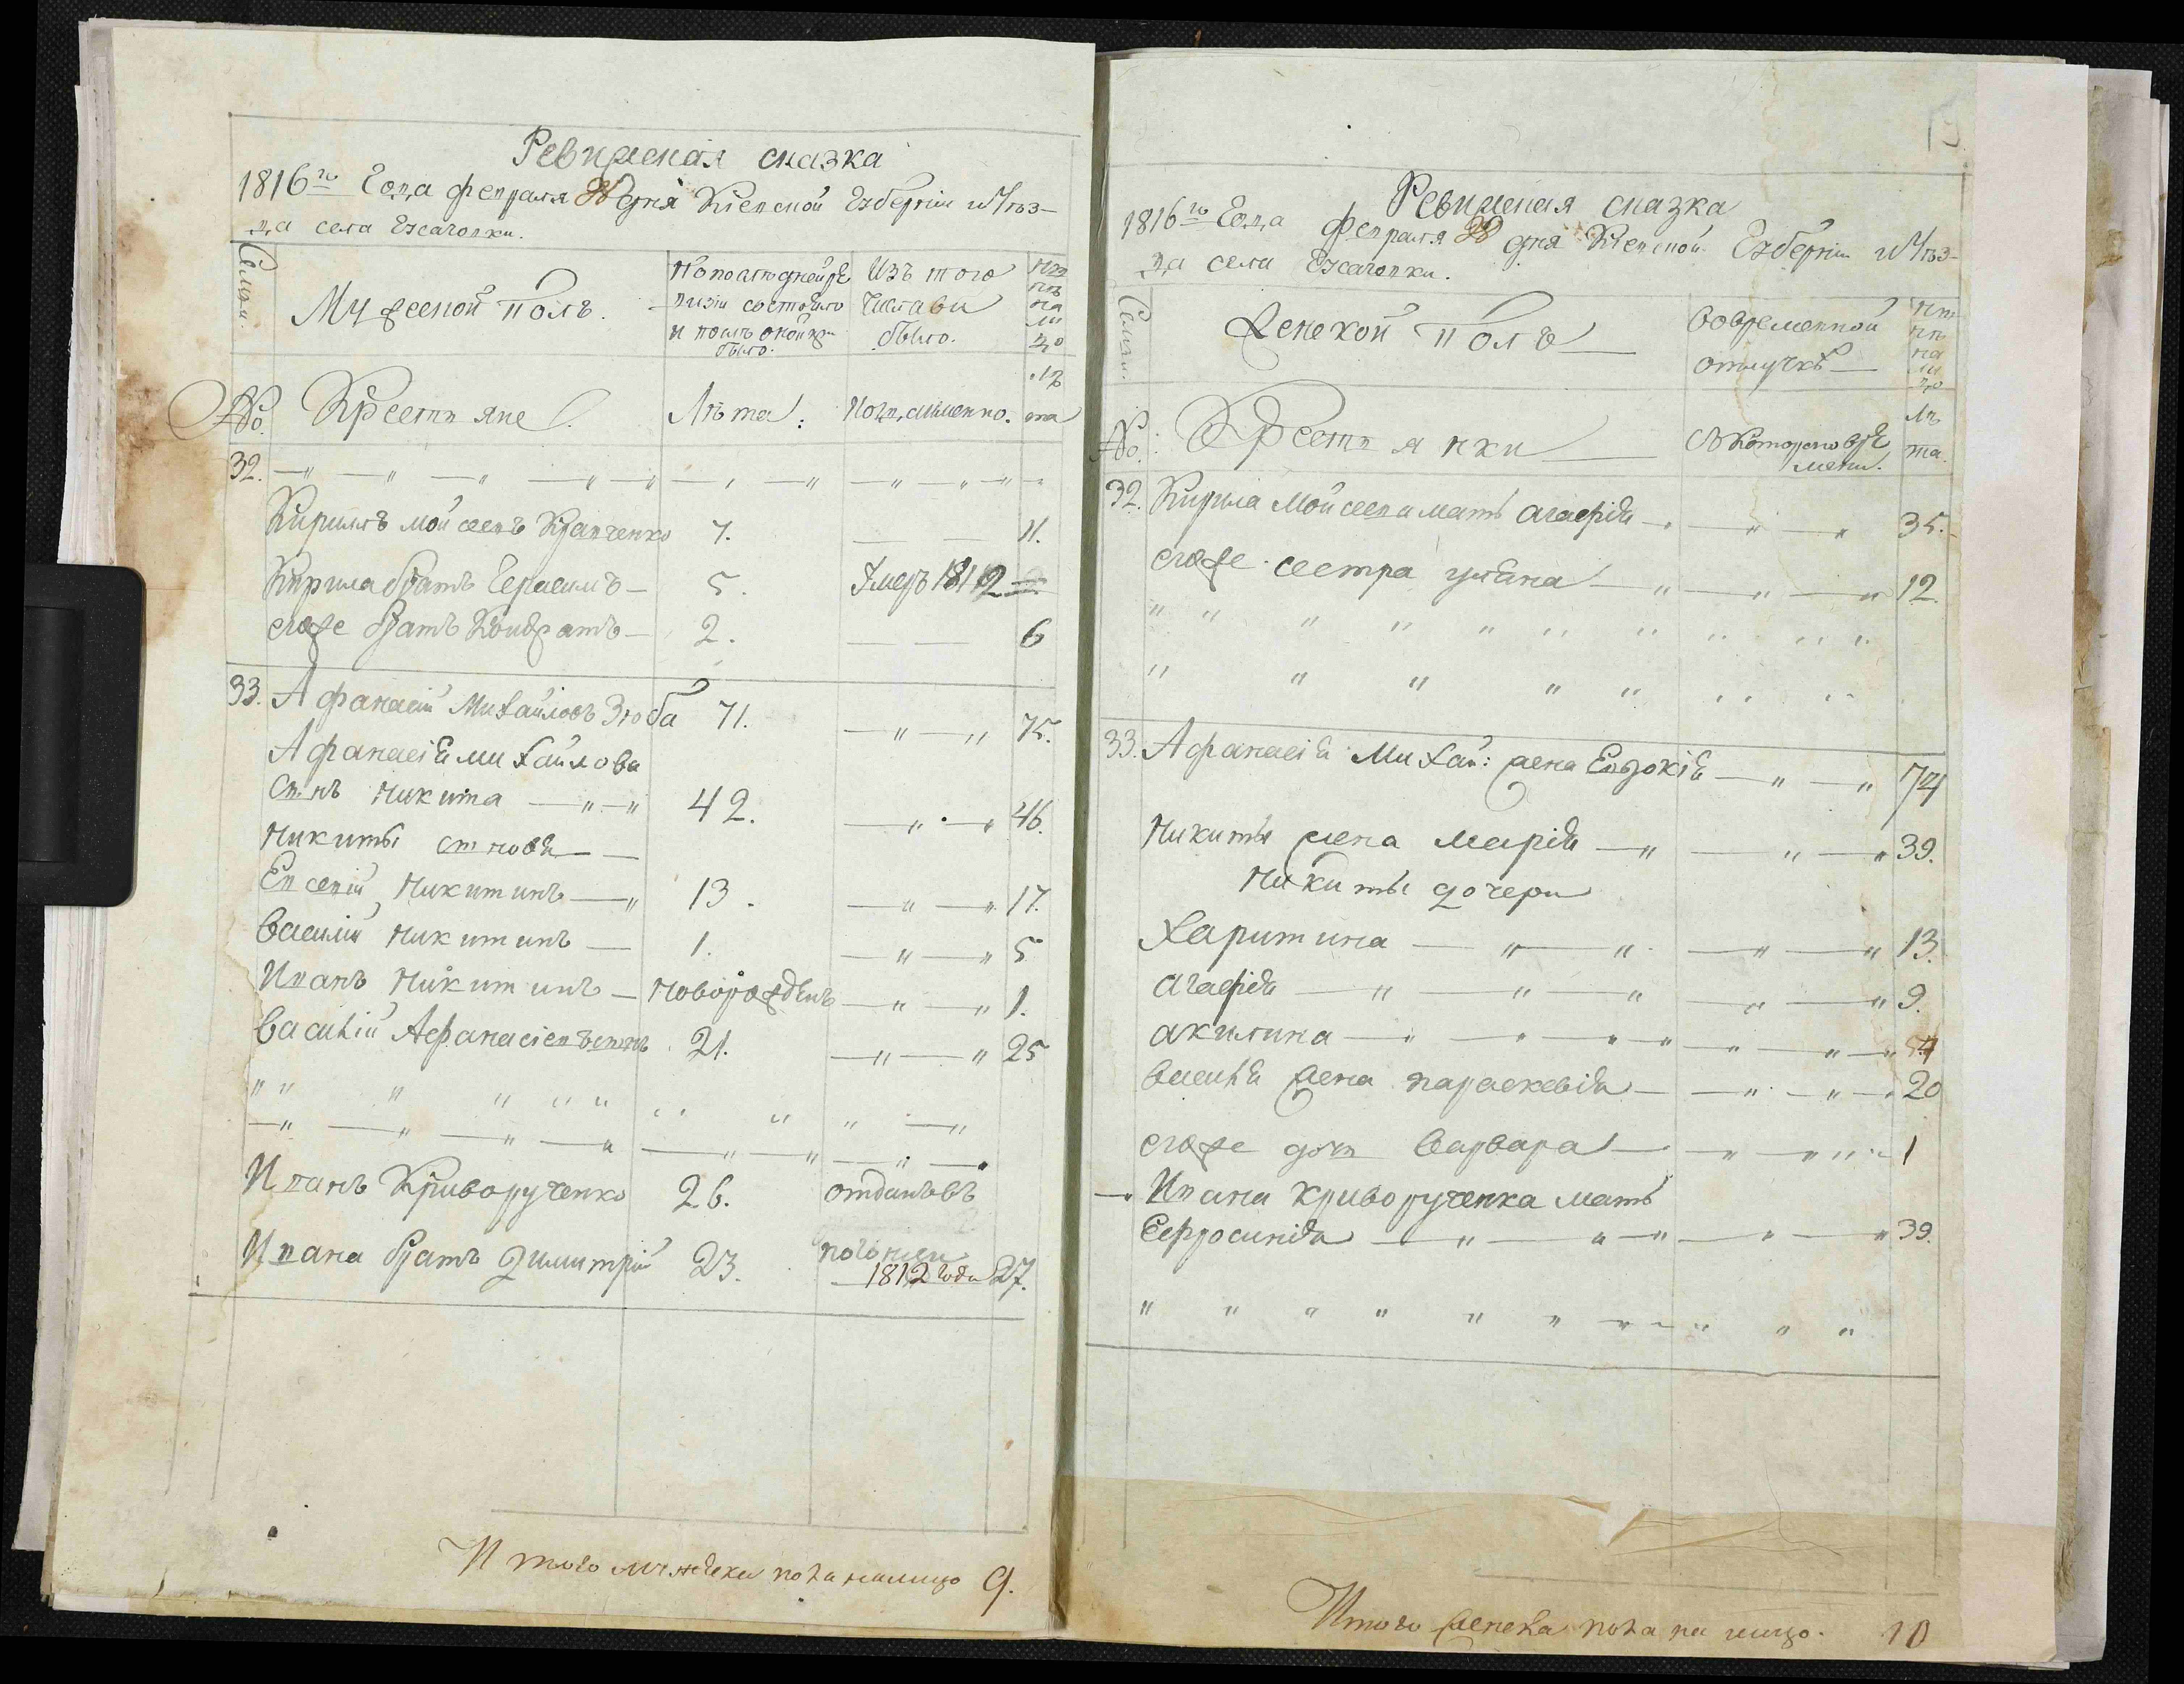 Ревижская сказка
1816го Года февраля 28 дня Киевской Губернии и Уѣз-
да села Гусачовки.
Семьи.
Мужеской полъ.
По последней ре
визіи состояло
и послѣ оной при
было.
Изъ того
числа вы
было.
Ны
нѣ
на
ли
цо
№
Крестьяне
Лѣта.
когда имянно.
лѣ
та
32.
Кирилъ Мойсеевъ Кравченко 7. 11.
Кирила братъ Герасимъ 5. Умеръ 1812
егоже братъ Кондратъ 2. 6
33. Афанасій Михайловъ Зюба 71. 75.
Афанасія Михайлова
сынъ Никита 42. 46.
Никиты сыновя
Евсевій Никитинъ 13. 17.
Василій Никитинъ 1. 5
Иванъ Никитинъ новорожденъ 1.
Василій Афанасіевъ сынъ 21. 25
Иванъ Криворученко 26. отданъ въ
погонщи
Ивана братъ Димитрій 23. 1812 года 27.
Итого мужеска пола налицо 9.
Ревижская сказка
1816го Года февраля 28 дня Киевской Губернии и Уѣз-
да села Гусачовки.
Семьи.
Женской полъ
Во временной
отлучкѣ
Ны
нѣ
на
ли
цо
№
Крестьянки
Съ котораго вре
мени.
лѣ
та.
32. Кирила Мойсеева мать Агафія 35.
егоже сестра уляна 12.
33. Афанасія Михай: жена Евдокія 74
Никиты жена Марія 39.
Никиты дочери
Харитина 13.
Агафія 9.
акилина 4
Василія жена параскевія 20
егоже дочь Варвара 1
Ивана Криворученка мать
Ефросинія 39.
Итого женска пола на лицо. 10